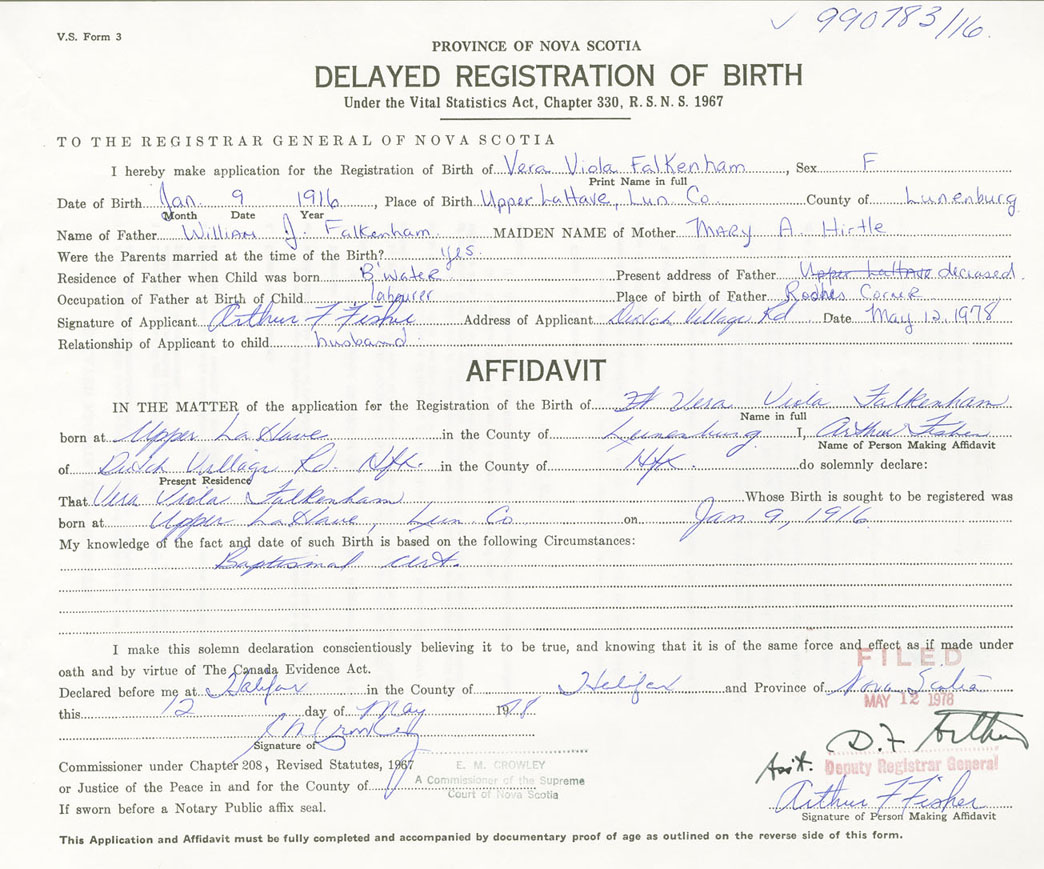 V.S. Form 3
✓ 990783/16.
PROVINCE OF NOVA SCOTIA
DELAYED REGISTRATION OF BIRTH
Under the Vital Statistics Act, Chapter 330, R.S.N.S. 1967
TO THE REGISTRAR GENERAL OF NOVA SCOTIA
I hereby make application for the Registration of Birth of Vera Viola Falkenham, Sex F
Print Name in full
Date of Birth Jan. 9 1916, Place of Birth Upper LaHave, Lun. Co County of Lunenburg
Month Date Year
Name of Father William J. Falkenham. MAIDEN NAME of Mother Mary A. Hirtle
Were the Parents married at the time of the Birth? yes.
Residence of Father when Child was born B'Water Present address of Father Upper LaHave deceased.
Occupation of Father at Birth of Child labourer Place of birth of Father Rodhes Corner
Signature of Applicant Arthur F Fisher Address of Applicant Dutch Village Rd Date May 12, 1978
Relationship of Applicant to child husband.
AFFIDAVIT
IN THE MATTER of the application for the Registration of the Birth of Vera Viola Falkenham
Name in full
born at Upper LaHave in the County of Lunenburg I, Arthur Fisher
Name of Person Making Affidavit
of Dutch Village Rd. Hfx. in the County of Hfx. do solemnly declare:
Present Residence
That Vera Viola Falkenham Whose Birth is sought to be registered was
born at Upper LaHave, Lun. Co on Jan 9, 1916.
My knowledge of the fact and date of such Birth is based on the following Circumstances:
Baptismal Cert.
I make this solemn declaration conscientiously believing it to be true, and knowing that it is of the same force and effect as if made under
oath and by virtue of The Canada Evidence Act.
FILED
Declared before me at Halifax in the County of Halifax and Province of Nova Scotia
MAY 12 1978
this 12 day of May 1978
E M Crowley
Signature of
D. F. Arthur
Commissioner under Chapter 208, Revised Statutes, 1967
E. M. CROWLEY
Asst. Deputy Registrar General
or Justice of the Peace in and for the County of
A Commissioner of the Supreme
Court of Nova Scotia
Arthur F Fisher
If sworn before a Notary Public affix seal.
Signature of Person Making Affidavit
This Application and Affidavit must be fully completed and accompanied by documentary proof of age as outlined on the reverse side of this form.